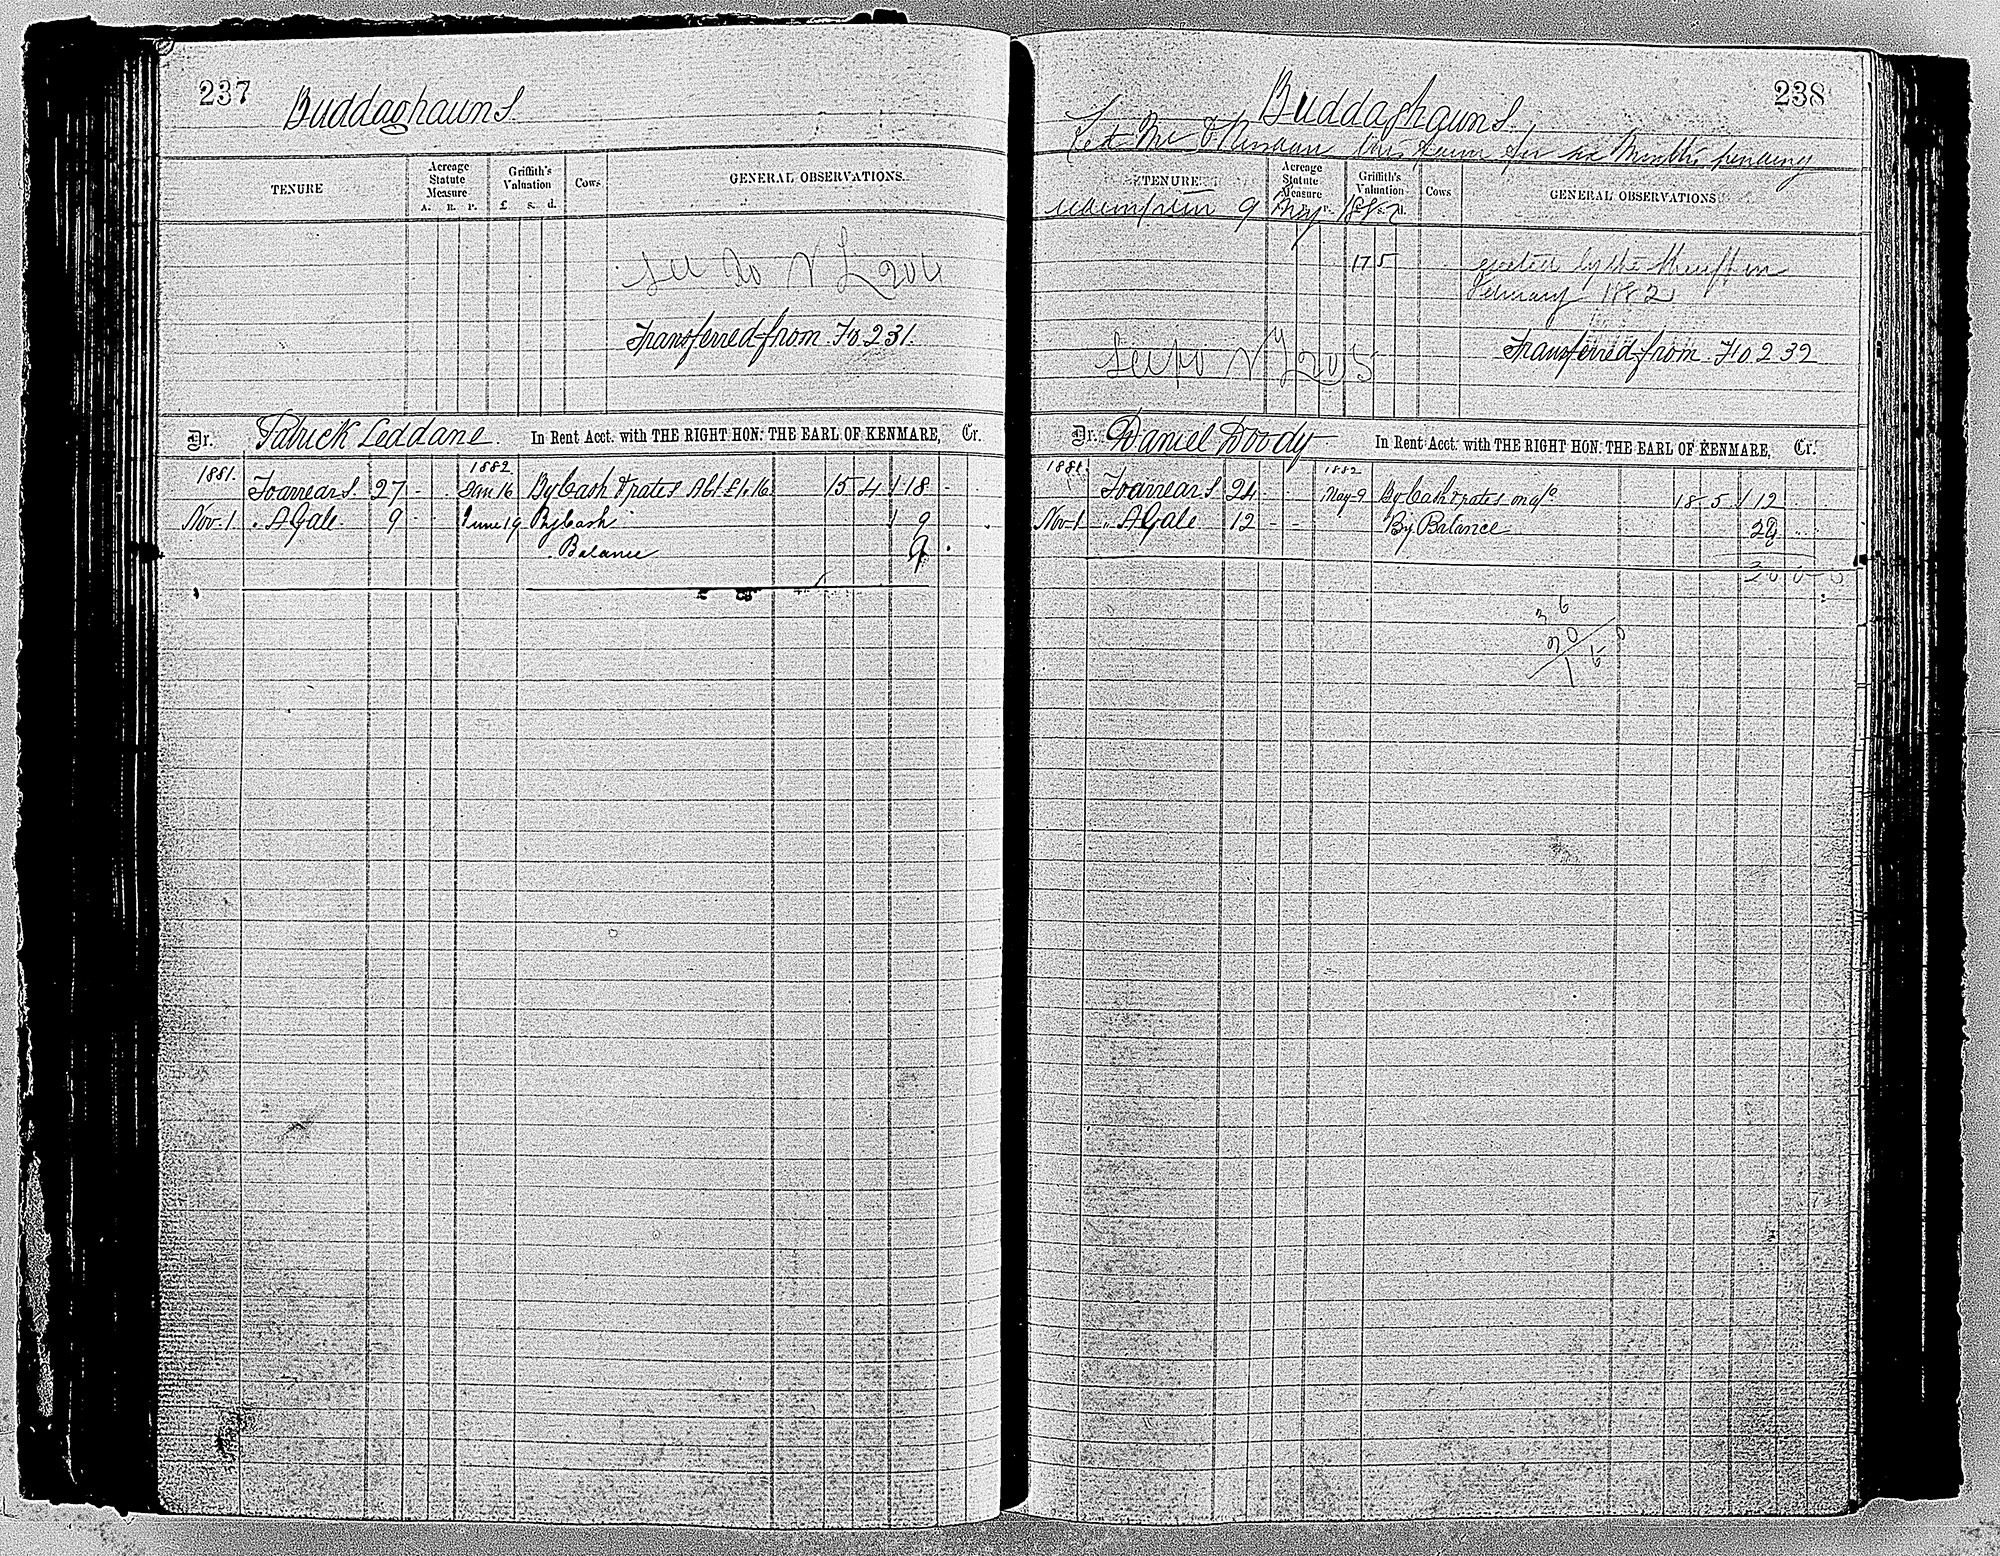 237
BuddaghaunS
TENURE Acreage Statute Measure A. R. P. Griffith's Valuation £ s. d. Cows GENERAL OBSERVATIONS.
see no
Transferred from Fo. 231.
Dr. Patrick Leddane. In Rent Acct. with THE RIGHT HON: THE EARL OF KENMARE, Cr.
1881. 1882
To arrears. 27 - - Jan 16 By Cash & rates Abt £1.16 15 4 18 -
Nov. 1 " A Gale. 9 - - June 19 By Cash 9
Balance 9
238
BuddaghaunS
Let this farm for six Months pending
TENURE Acreage Statute Measure Griffith's Valuation Cows GENERAL OBSERVATIONS
redemption 9 May 1882
17 5 ejected by the Sheriff in
February 1882
Transferred from Fo 232
Dr. Daniel Doody In Rent Acct. with THE RIGHT HON: THE EARL OF KENMARE, Cr.
1881 1882
To arrears 24 - - May 9 By Cash & rates on a/c 18 5 12
Nov. 1 " A Gale 12 - - By Balance
36